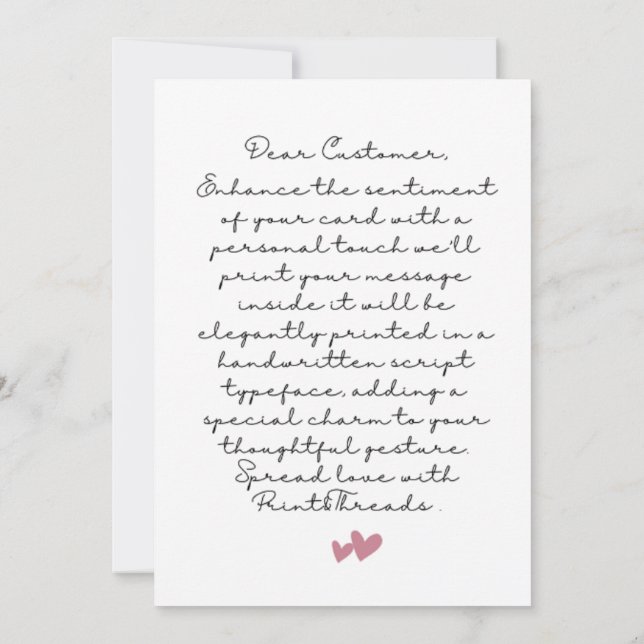 Dear Customer,
Enhance the sentiment
of your card with a
personal touch we'll
print your message
inside it will be
elegantly printed in a
handwritten script
typeface, adding a
special charm to your
thoughtful gesture.
Spread love with
Print&Threads.